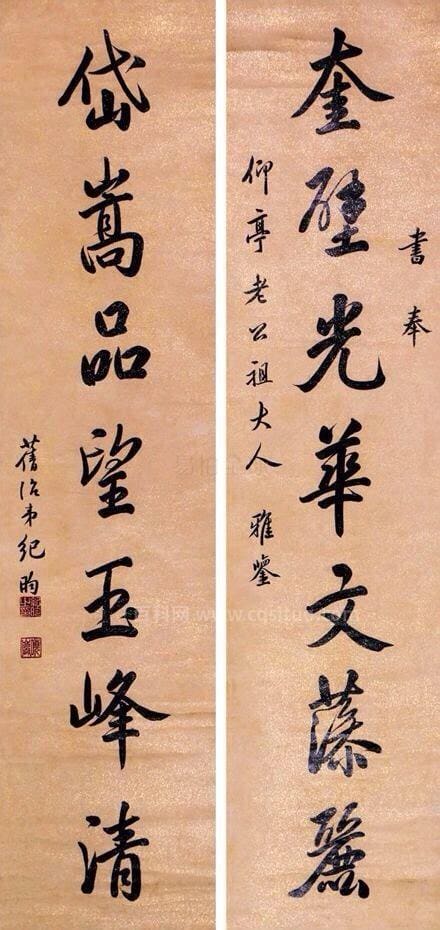 書奉
奎壁光華文藻麗
仰亭老公祖大人 雅鑒
岱嵩品望玉峰清
舊治弟紀昀
百科网 www.cqsltu.com